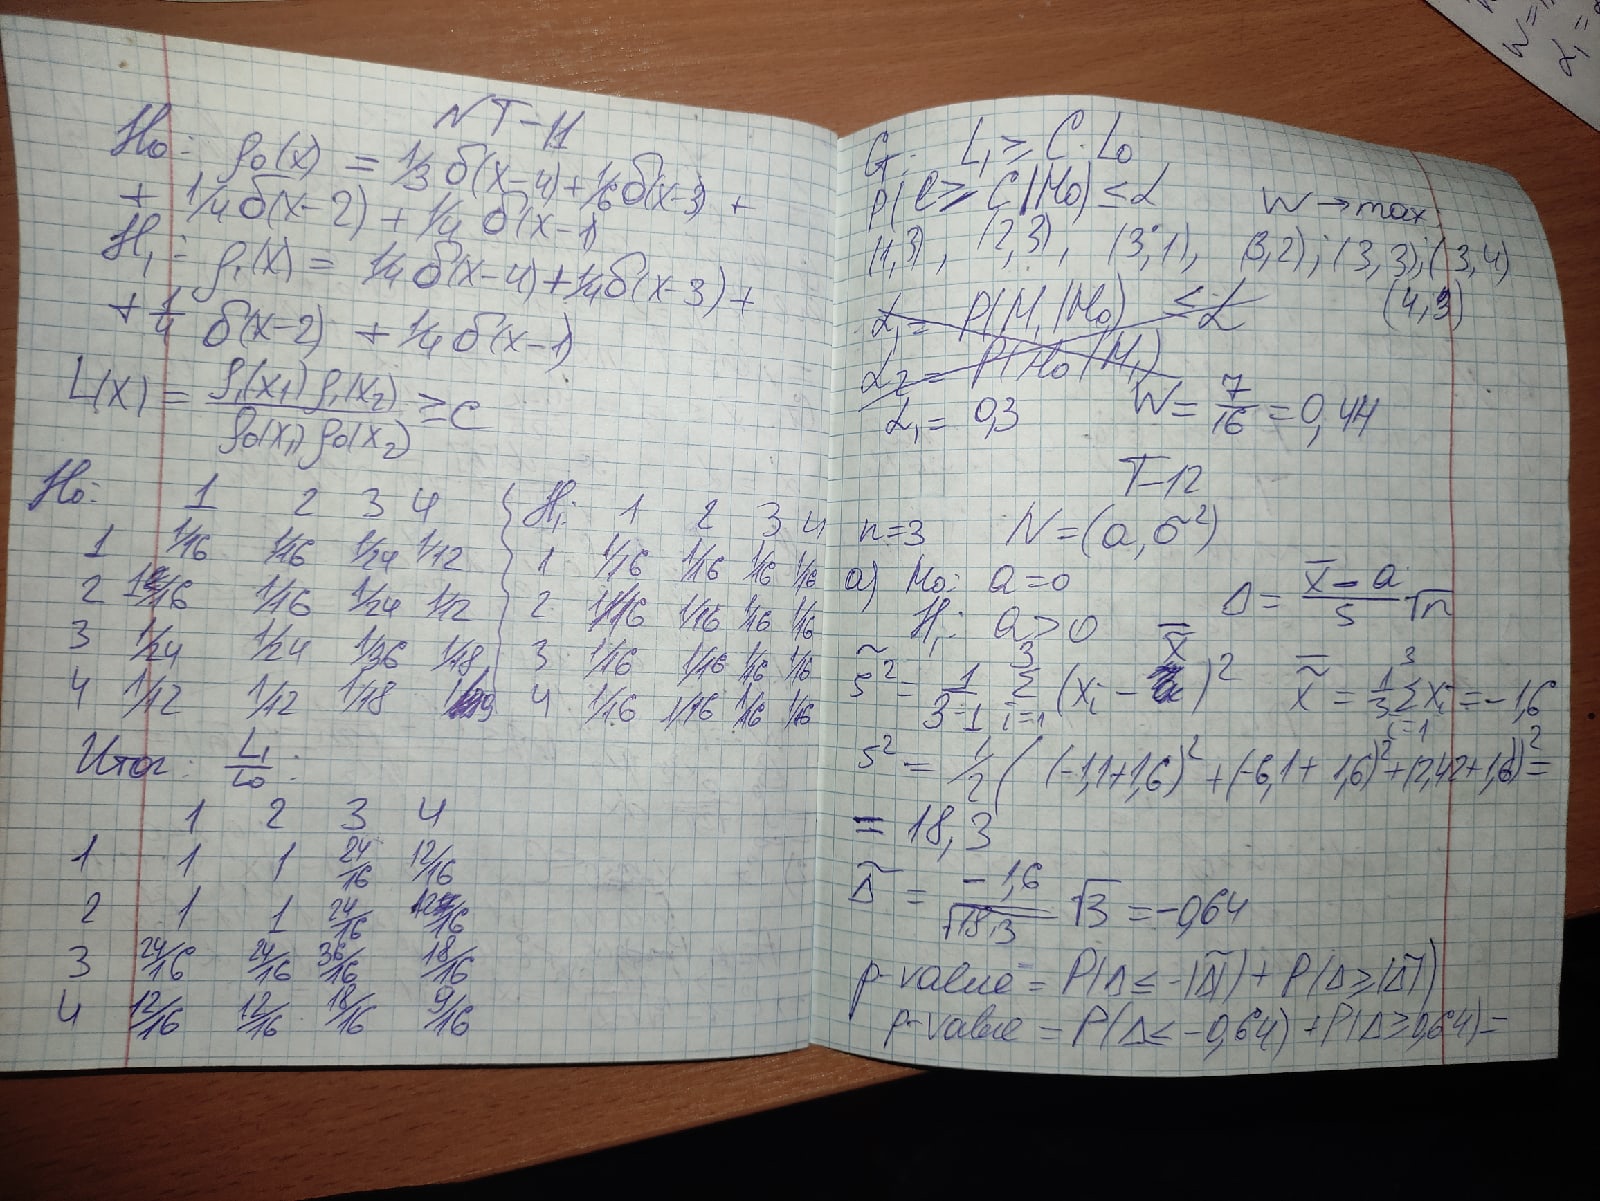 NT-11
H₀: ρ₀(x) = 1/3 δ(x-4) + 1/6 δ(x-3) +
+ 1/4 δ(x-2) + 1/4 δ(x-1)
H₁: ρ₁(x) = 1/4 δ(x-4) + 1/4 δ(x-3) +
+ 1/4 δ(x-2) + 1/4 δ(x-1)
L(x) = ρ₁(x₁) ρ₁(x₂) / ρ₀(x₁) ρ₀(x₂) ≥ C
H₀: 1 2 3 4 H₁: 1 2 3 4
1 1/16 1/16 1/24 1/12 1 1/16 1/16 1/16 1/16
2 1/16 1/16 1/24 1/12 2 1/16 1/16 1/16 1/16
3 1/24 1/24 1/36 1/18 3 1/16 1/16 1/16 1/16
4 1/12 1/12 1/18 1/9 4 1/16 1/16 1/16 1/16
Итог: L₁/L₀:
1 2 3 4
1 1 1 24/16 12/16
2 1 1 24/16 12/16
3 24/16 24/16 36/16 18/16
4 12/16 12/16 18/16 9/16
G: L₁ ≥ C·L₀
P(ℓ ≥ C|H₀) ≤ α W → max
(1,3), (2,3), (3,1), (3,2); (3,3); (3,4)
(4,3)
α₁ = P(H₁|H₀) ≤ α
α₂ = P(H₀|H₁)
α₁ = 0,3 W = 7/16 = 0,44
T-12
n=3 N = (a, σ²)
a) H₀: a=0 Δ = (x̄ - a)/S √n
H₁: a>0
s̃² = 1/(3-1) Σ³ᵢ₌₁ (xᵢ - x̄)² x̄̃ = 1/3 Σ³ᵢ₌₁ xᵢ = -1,6
s² = 1/2 ( (-1,1+1,6)² + (-6,1+1,6)² + (2,42+1,6))² =
= 18,3
Δ̃ = -1,6/√18,3 √3 = -0,64
p-value = P(Δ ≤ -|Δ̃|) + P(Δ ≥ |Δ̃|)
p-value = P(Δ ≤ -0,64) + P(Δ ≥ 0,64) =